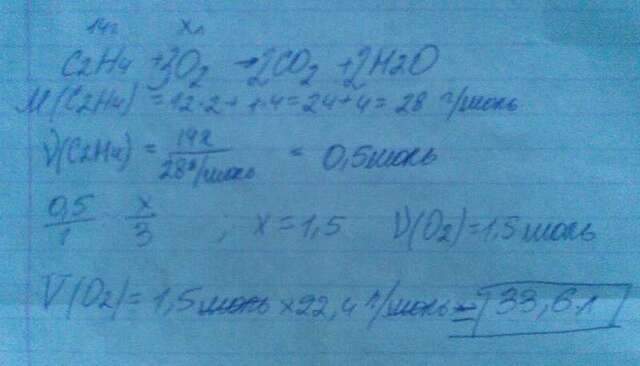 14г хл
C2H4 + 3O2 → 2CO2 + 2H2O
M(C2H4) = 12·2 + 1·4 = 24+4 = 28 г/моль
ν(C2H4) = 14г / 28г/моль = 0,5 моль
0,5/1 x/3 , x = 1,5 ν(O2) = 1,5 моль
V(O2) = 1,5 моль × 22,4 л/моль = 33,6 л